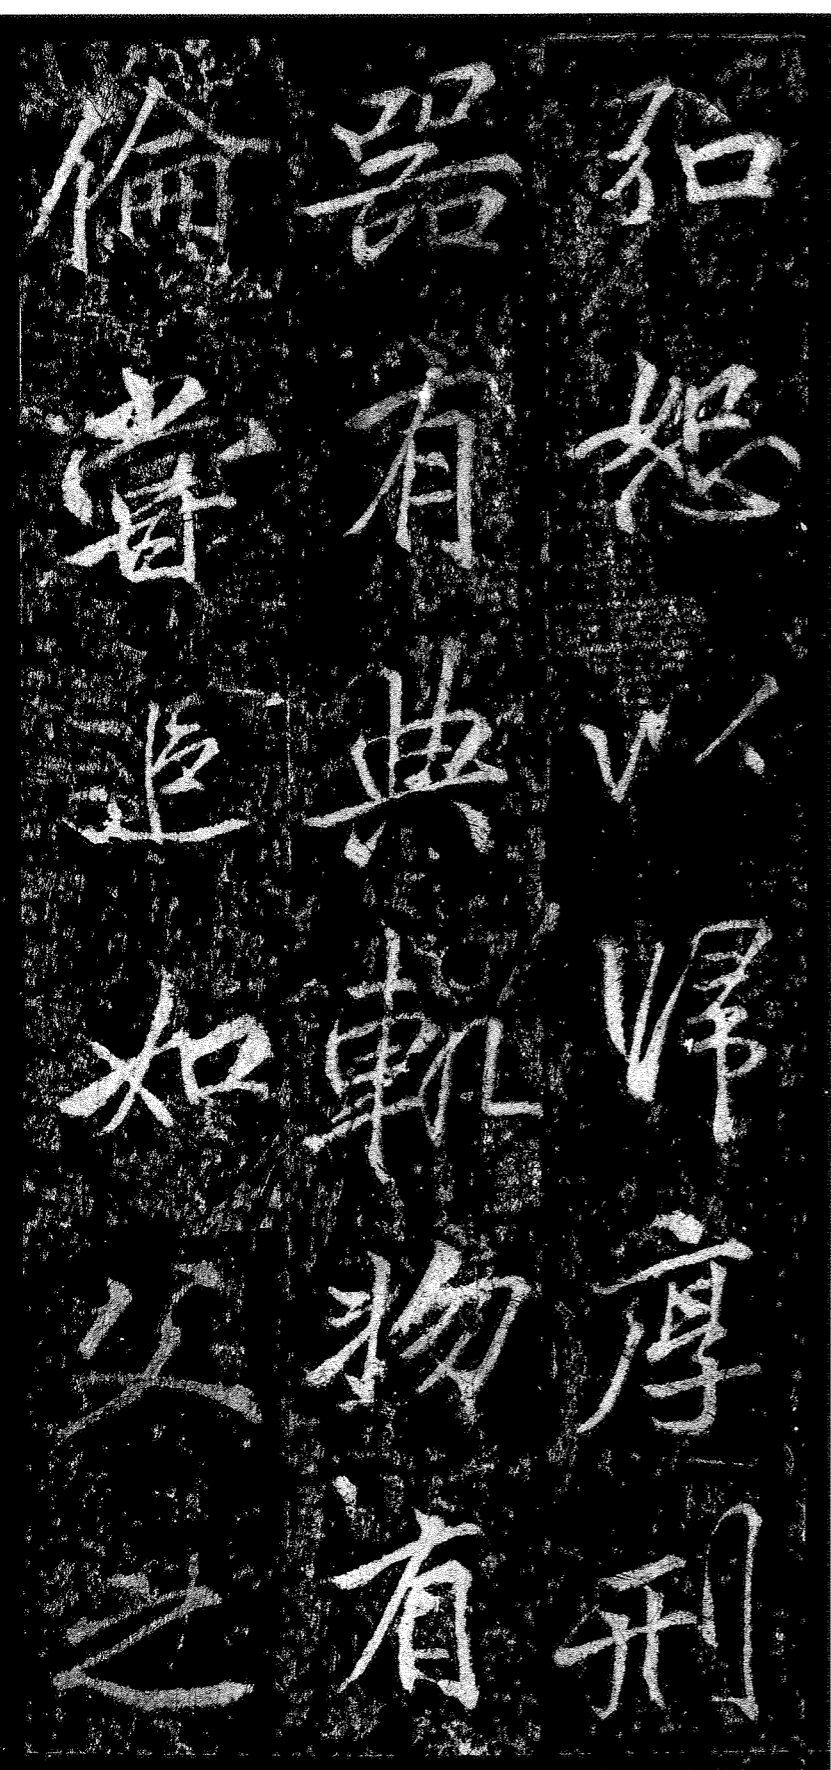 弘恕以歸厚刑
器有典軌物有
倫嘗追如父之